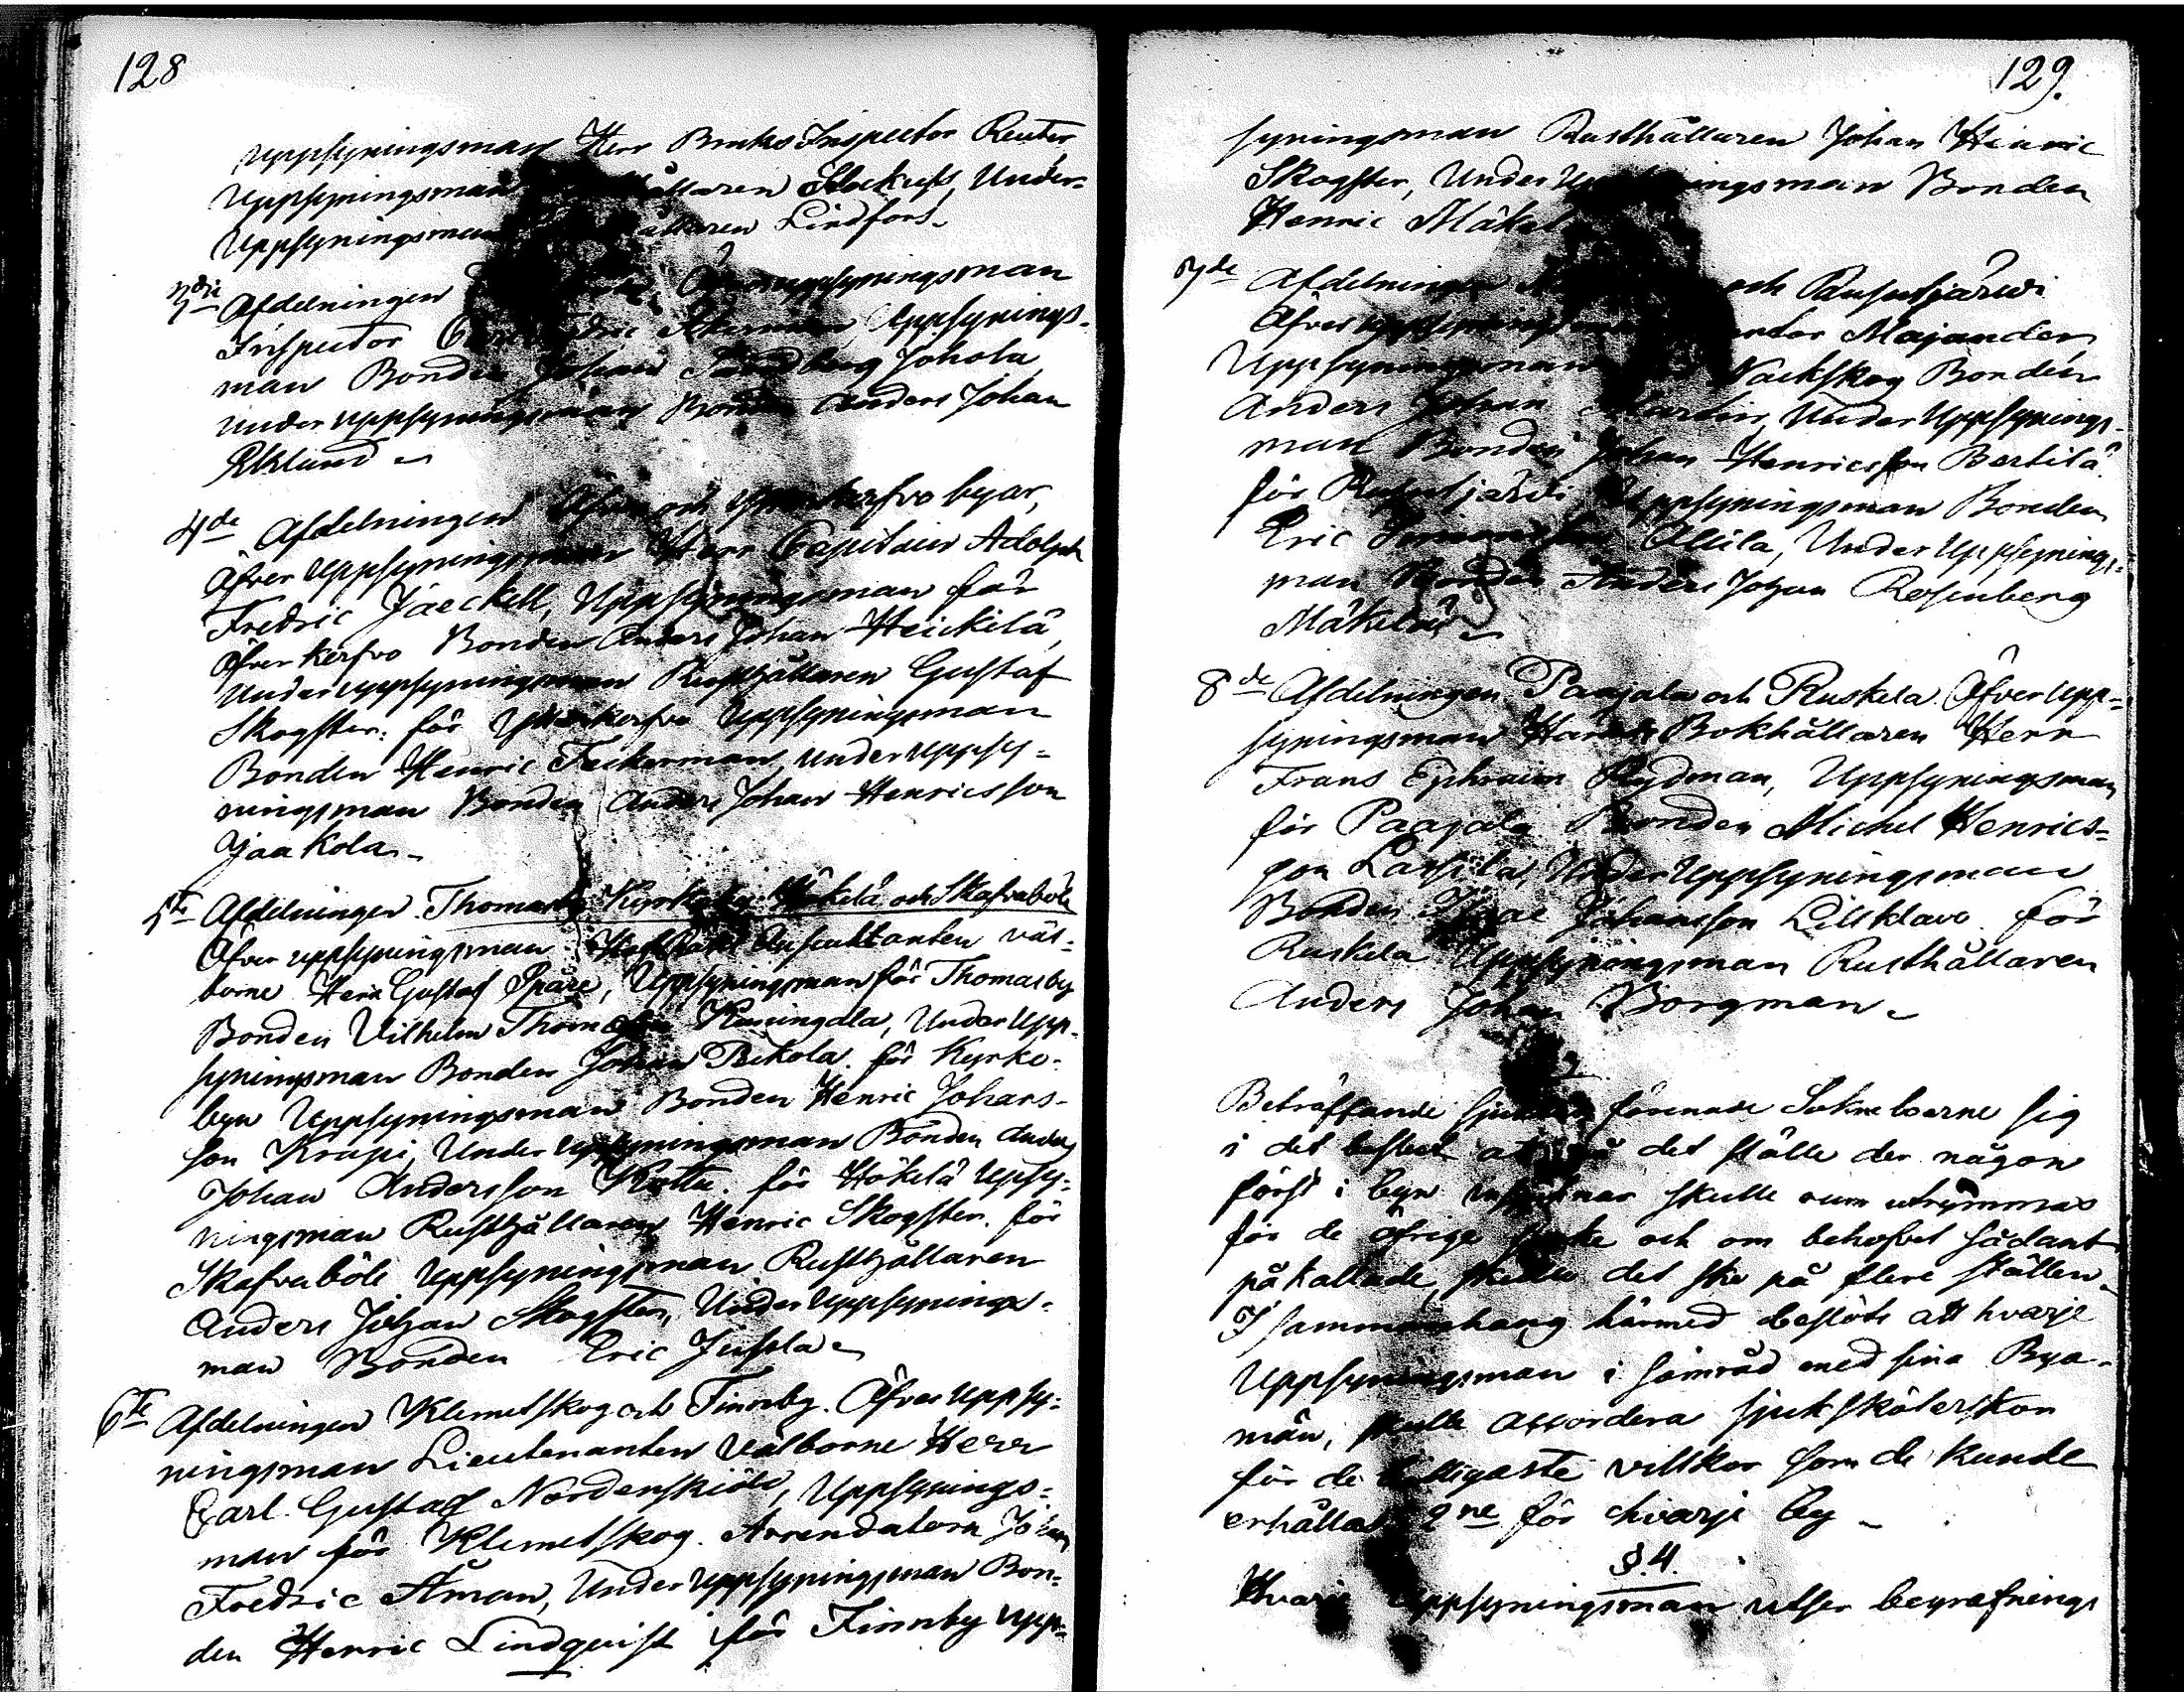 128
uppsyningsman Herr Bruks Inspector Reuter
Uppsyningsman Under-
Uppsyningsman Lindfors.
3die Afdelningen Öfveruppsyningsman
Inspector Uppsynings-
man Bonden Johan Sandberg Johola
under uppsyningsman Bonden Anders Johan
Eklund
4de Afdelningen och byar,
Öfver Uppsyningsman Herr Capitain Adolph
Fredric Jaeckell, Uppsyningsman för
Öfverkerfvo Bonden Anders Johan Heickilä,
Underuppsyningsman Rusthållaren Gustaf
Skogster. för Uppsyningsman
Bonden Henric Teckerman, underuppsy-
ningsman Bonden Anders Johan Henricsson
Jaakola
5te Afdelningen Thomasby Kyrkoby Hökelä och Skafvaböle
Öfver uppsyningsman Auscultanten väl-
borne Herr Gustaf Uppsyningsman för Thomasby
Bonden Vilhelm Under Upp-
syningsman Bonden Johan Pekola. för Kyrko-
byn Uppsyningsman Bonden Henric Johans-
son Krapi, Under uppsyningsman Bonden Anders
Johan Andersson för Hökelä Uppsy-
ningsman Rusthållaren Henric Skogster. för
Skafvaböle Uppsyningsman Rusthållaren
Anders Johan Skogster, Under Uppsynings-
man Bonden Eric Jussla
6te Afdelningen Klemetskog och Finnby. Öfver Uppsy-
ningsman Lieutenanten Välborne Herr
Carl Gustaf Nordenskiöld, Uppsynings-
man för Klemetskog. Arrendatorn Johan
Fredric Åman, Under Uppsyningsman Bon-
den Henric Lindqvist för Finnby upp-
129.
syningsman Rusthållaren Johan Henric
Skogster, Under Uppsyningsman Bonden
Henric
7de Afdelningen och Rusutjärwi
Öfver uppsyningsman Majander,
Uppsyningsman Nackskog Bonden
Anders Johan Martin, Under Uppsynings-
man Bonden Johan Henricsson Bertilä
för Rusutjärwi Uppsyningsman Bonden
Eric Simonsson Allila, Under Uppsynings-
man Bonden Anders Johan Rosenberg
Mäkelä
8de Afdelningen Paajala och Ruskela Öfver upp-
syningsman Härads Bokhållaren Herr
Frans Ephraim Rydman, Uppsyningsman
för Paajala Bonden Michel Henrics-
son Lassila, Under Uppsyningsman
Bonden Isaac Johansson Lillklavo. för
Ruskela Uppsyningsman Rusthållaren
Anders Johan Borgman
Beträffande förenade Sokneboerne sig
i det beslut at på det ställe der någon
först i byn insjuknar skulle rum utrymmas
för de öfrige sjuke och om behofvet sådant
påkallade, skulle det ske på flere ställen.
I sammanhang härmed beslöts att hvarje
Uppsyningsman i samråd med sina Bya-
män, skulle accordera sjuksköterskor
för de billigaste villkor som de kunde
erhålla 2ne för hvarje by
§. 4.
Hvarje Uppsyningsman utser begrafnings